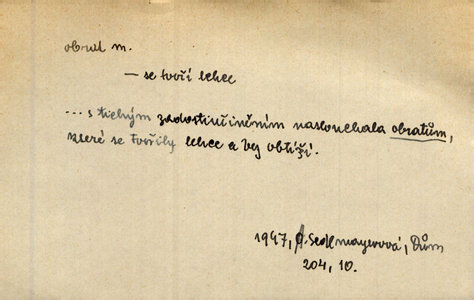 obrat m.
— se tvoří lehce
... s tichým zadostiučiněním naslouchala obratům,
které se tvořily lehce a bez obtíží.
1947, A. Sedlmayerová, Dům
204, 10.